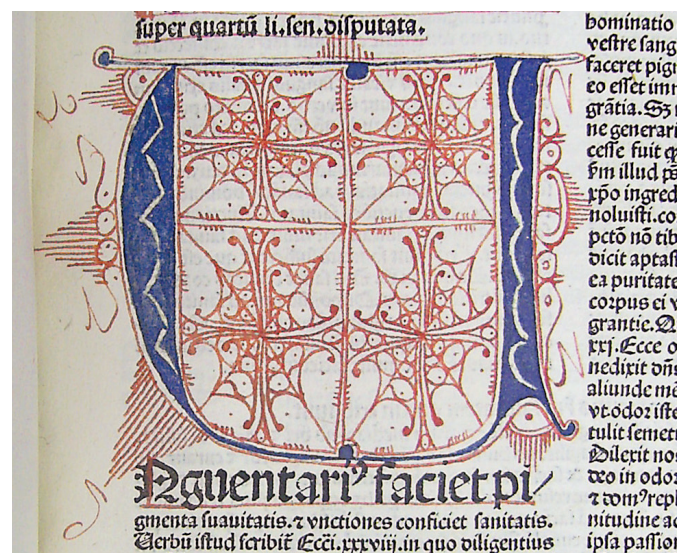 super quartū li. sen. disputata.
U
Nguentariꝰ faciet pi/
gmenta suauitatis. ⁊ vnctiones conficiet sanitatis.
Uerbū istud scribit̄ Ecci. xxxviij. in quo diligentius
hominatio
vestre sang
faceret pig
eo esset imm
grātia. Sꝫ
ne generari
cesse fuit
illud
xp̄o ingred
noluisti. co
pctō nō tib
dicit aptast
ea puritate
corpus ei v
grantie.
xxj. Ecce o
nedixit dn̄s
aliunde me
vt. odor iste
tulit semet
Dilexit no
deo in odo
⁊ domꝰ repl
nitudine ac
ipsa passion